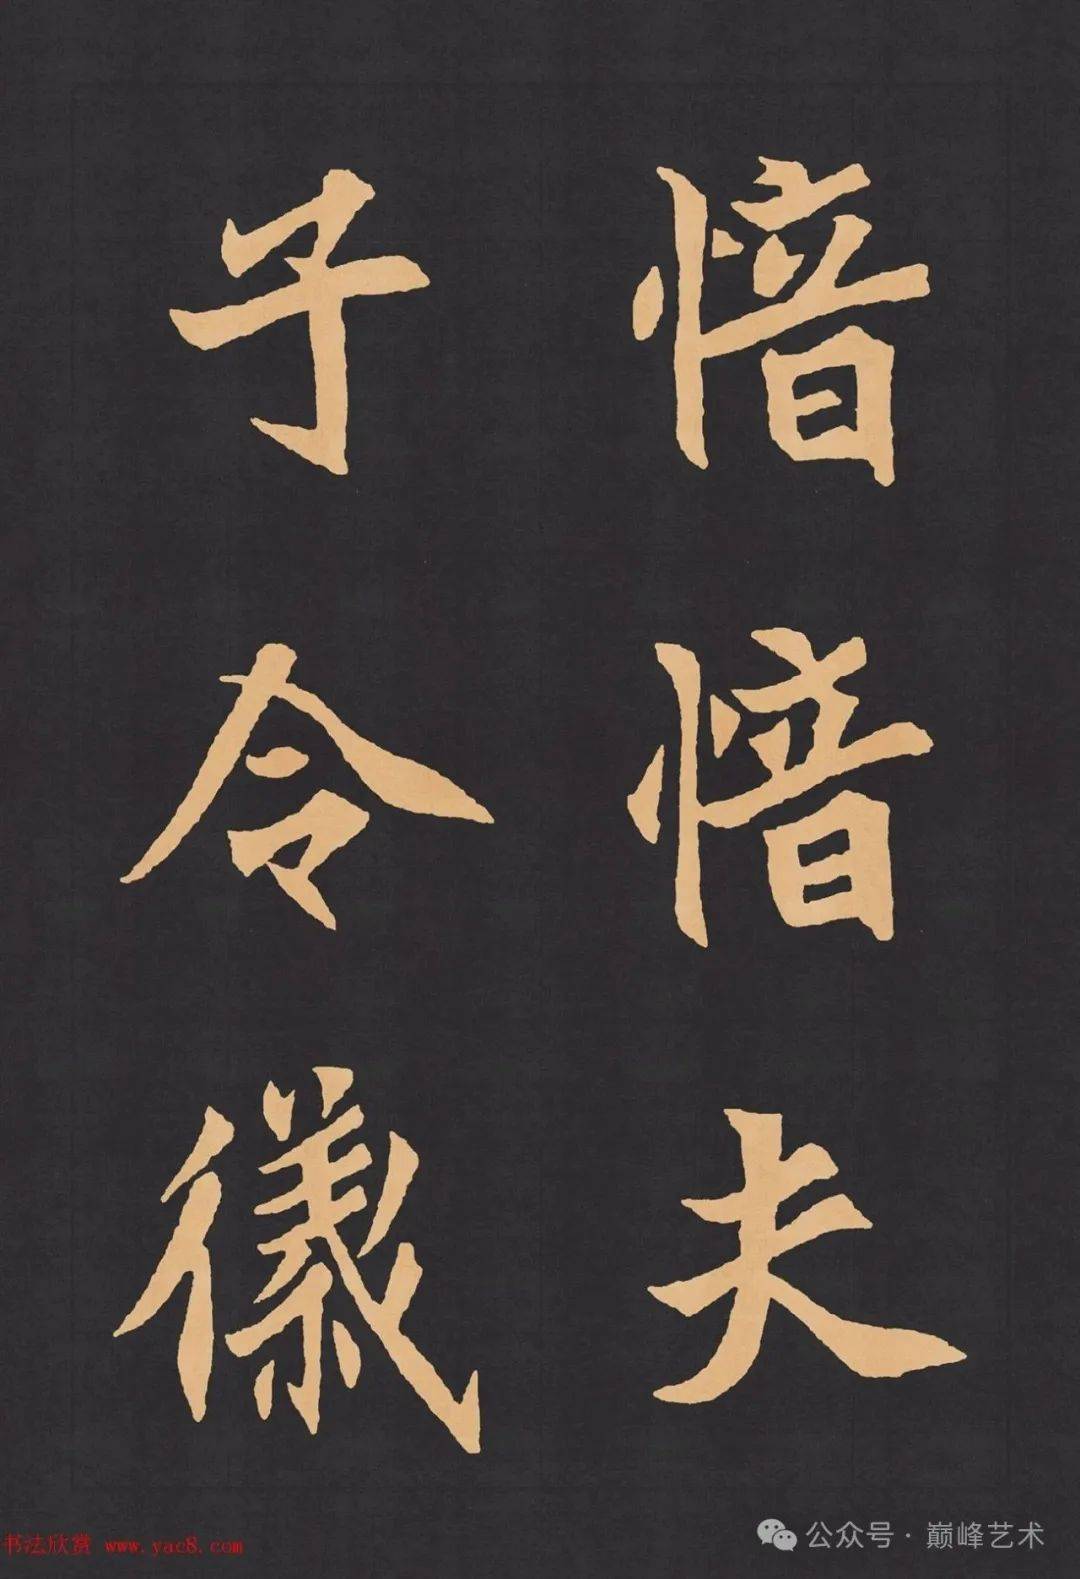 愔愔夫
子令儀
书法欣赏 www.yac8.com
公众号·巅峰艺术